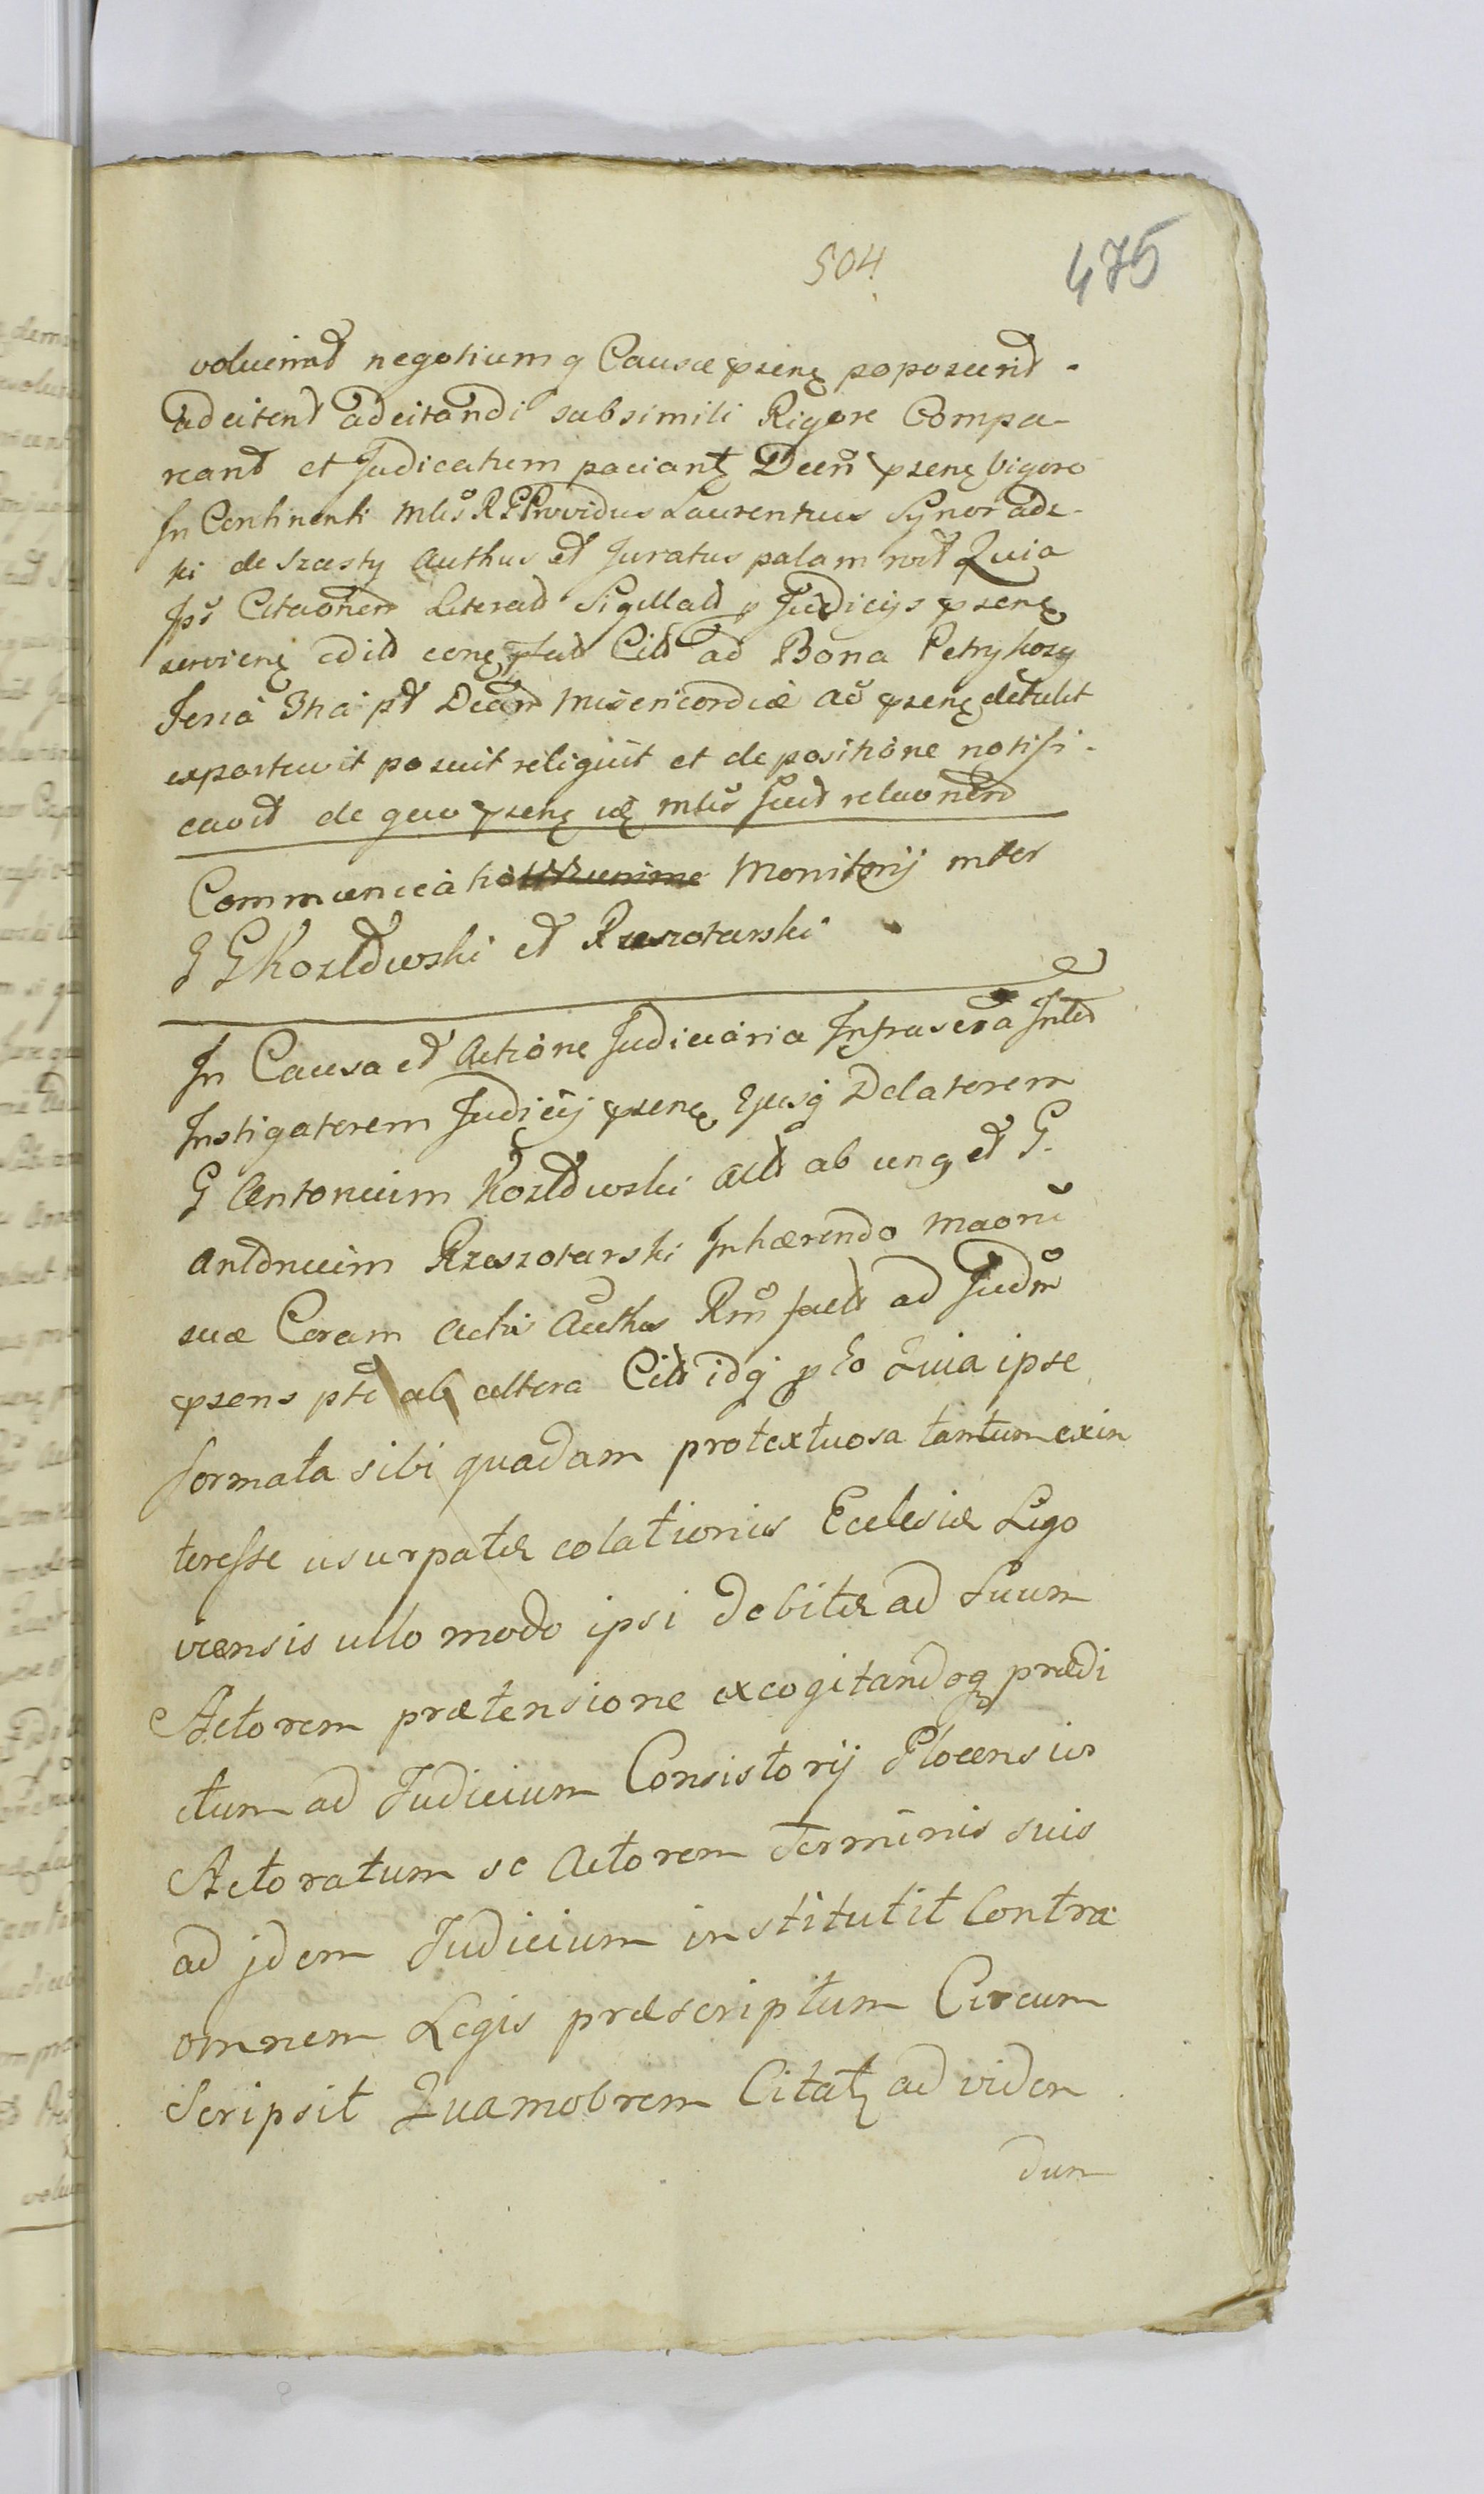 504.
475
voluerint negotiumq Causæ pseng poposcerit.
adcitent adcitandi sub simili Rigore Compa-
reant et Judicatum paciant Decr pseng Vigore
In Continenti Mtris RG Providus Laurentius Synoradz-
ki de Szczesty Authus et Juratus palam rect Quia
Ips Citaonem Literal Sigillat p Judicijs pseng
servieng edit ceng Cit ad Bona Petrykozy
Feria 3tia pt Dcam Misericordiæ Ao pseng detulit
exportavit posuit reliquit et de positione notifi-
cavit de quo pseng mtris suit relaonem
Communicatio Monitorij inter
G G Kozłowski et Rzeszotarski
In Causa et Actione Judiciaria Infrascra Inter
Instigatorem Judicij pseng Ejusq Delatorem
G Antonium Kozłowski Act ab unq et G.
Antonium Rzeszotarski Inhærendo Maoni
suæ Coram Actis Authis Rm fact ad Judm
psens pte ab altera Cit idq p Eo Quia ipse
formata sibi quadam protextuosa tantum exin
teresse usurpatæ colationis Ecclesiæ Ligo
viensis ullo modo ipsi debitæ ad Suum
Actorem prætensione excogitandoq prædi
ctum ad Judicium Consistorij Plocensis
Actoratum se Actorem Terminis suis
ad jdem Judicium institutit Contra
omnem Legis præscriptum Circum
Scripsit Quamobrem Citat ad viden
dum